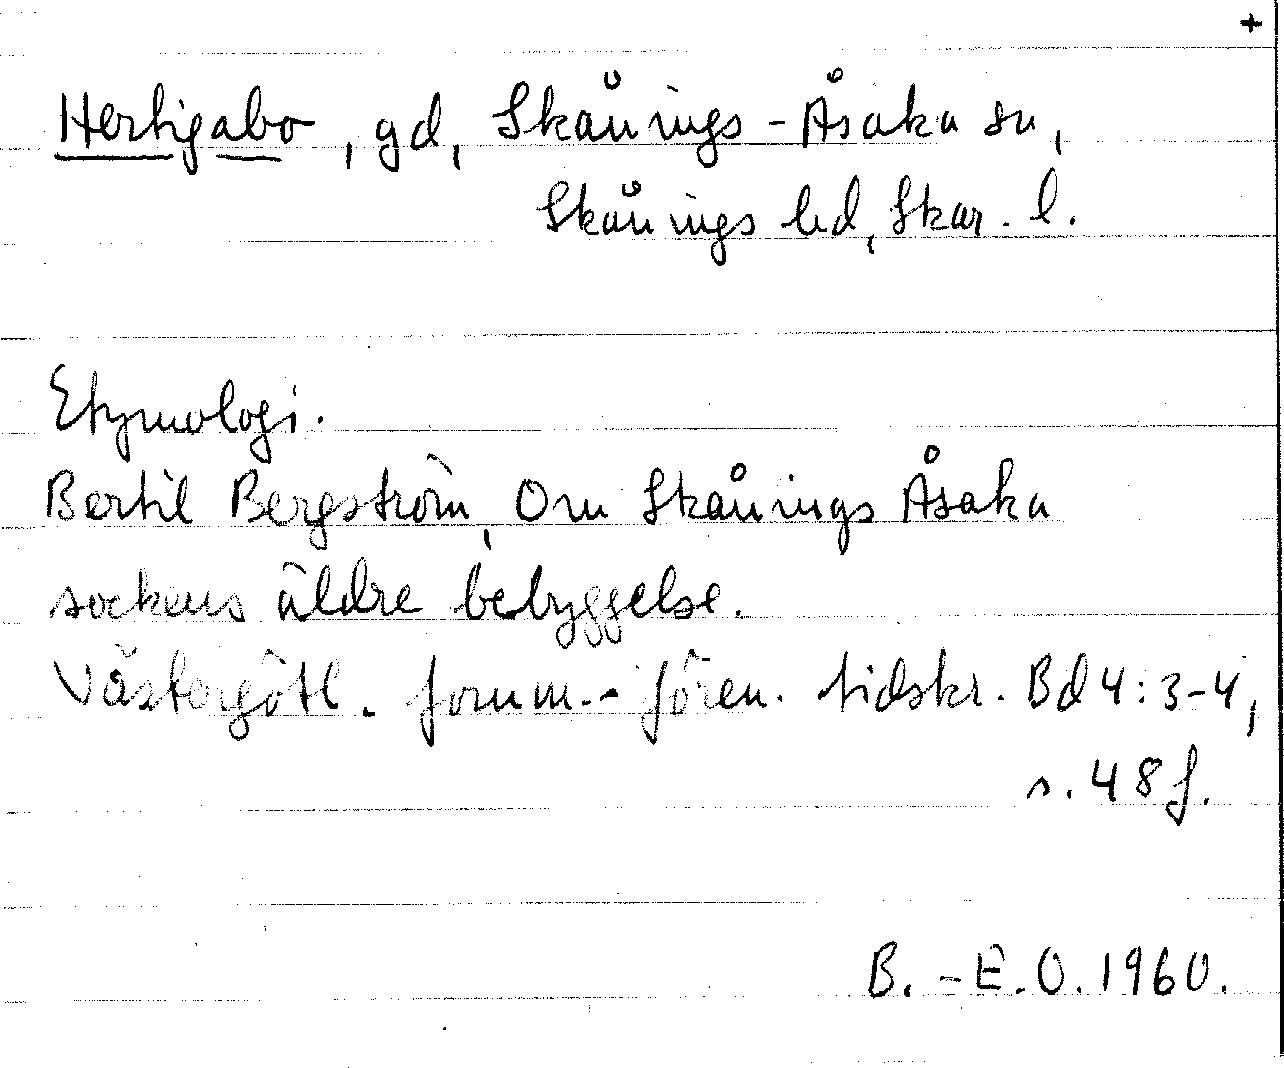 +
Hertigabo, gd, Skånings-Åsaka sn,
Skånings hd, Skar. l.
Etymologi.
Bertil Bergström, Om Skånings Åsaka
sockens äldre bebyggelse.
Västergötl. fornm.-fören. tidskr. Bd 4:3-4,
s. 48 f.
B.-E.O. 1960.